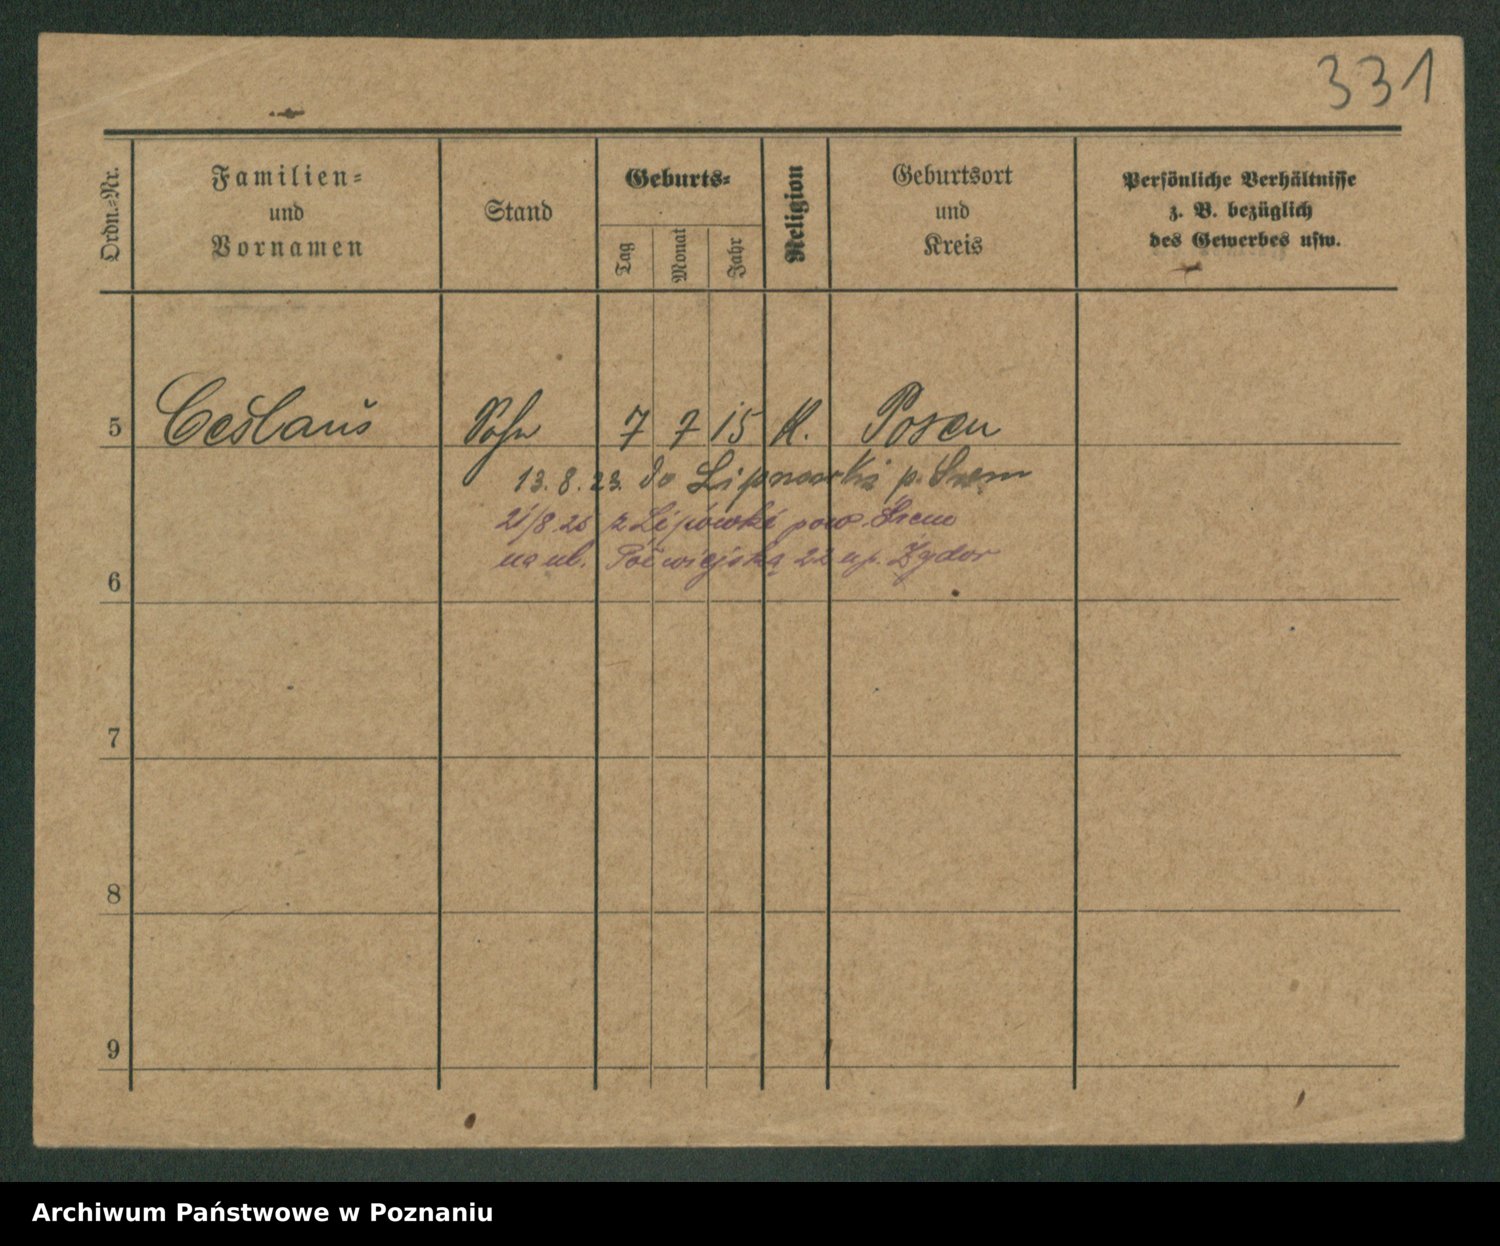 331
Ordn.-Nr.
Familien-
und
Vornamen
Stand
Geburts-
Tag
Monat
Jahr
Religion
Geburtsort
und
Kreis
Persönliche Verhältnisse
z. B. bezüglich
des Gewerbes usw.
5 Ceslaus Sohn 7 7 15 K. Posen
13. 8. 23. do Lipnowki p. Srem
21/8 25 z Lipówki pow. Srem
6 na ul. Półwiejską 22 u p. Zydor
7
8
9
Archiwum Państwowe w Poznaniu